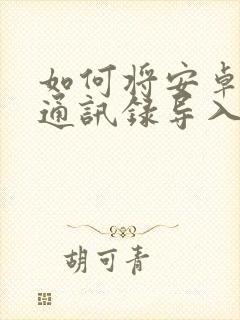 如何将安卓
通訊録导入
胡可青